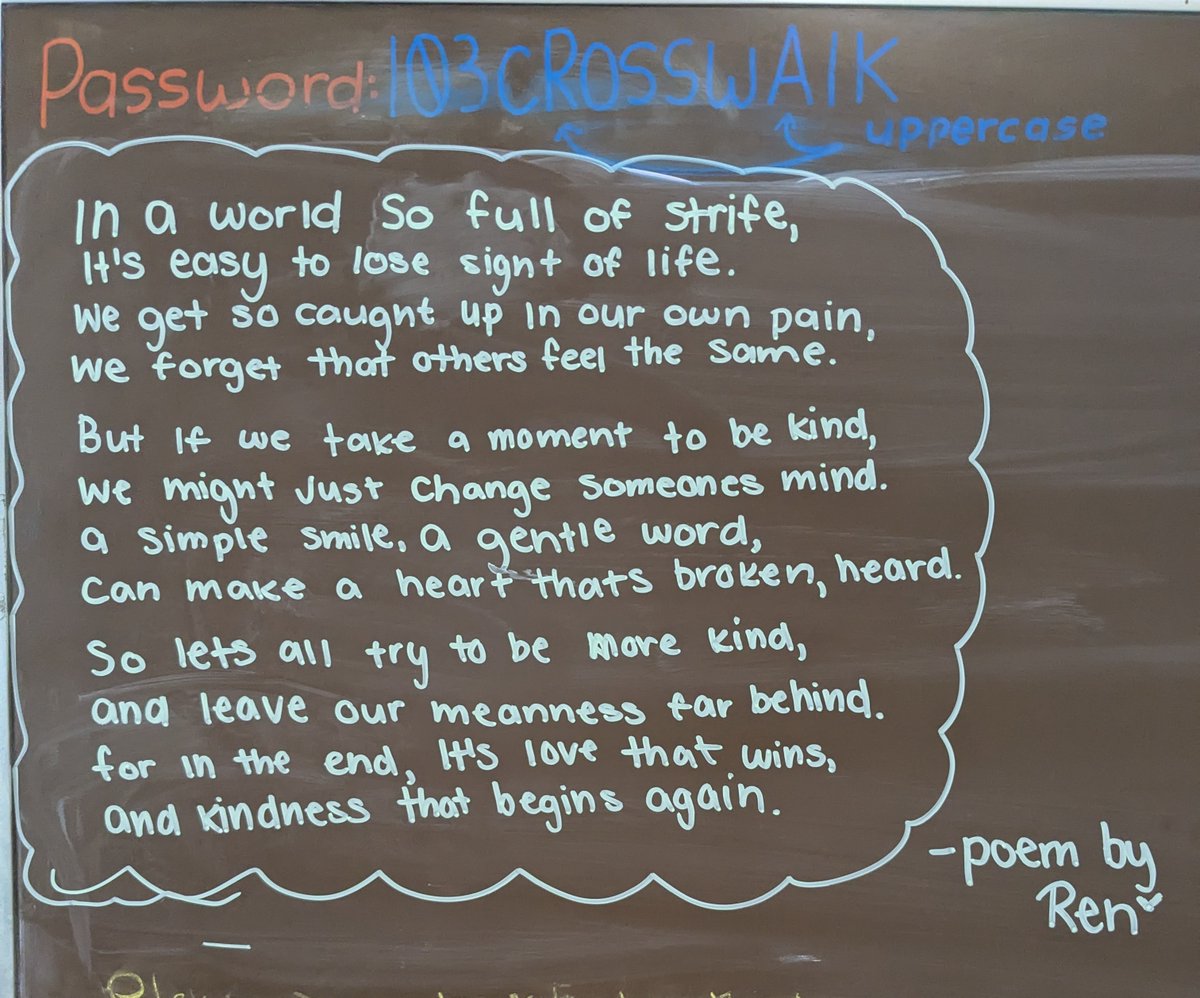 Password: 103cRosswAlk
uppercase
In a world so full of strife,
It's easy to lose sight of life.
We get so caught up in our own pain,
We forget that others feel the same.
But if we take a moment to be kind,
We might just change someones mind.
a simple smile, a gentle word,
Can make a heart thats broken, heard.
So lets all try to be more kind,
and leave our meanness far behind.
for in the end, it's love that wins,
and kindness that begins again.
-poem by
Ren